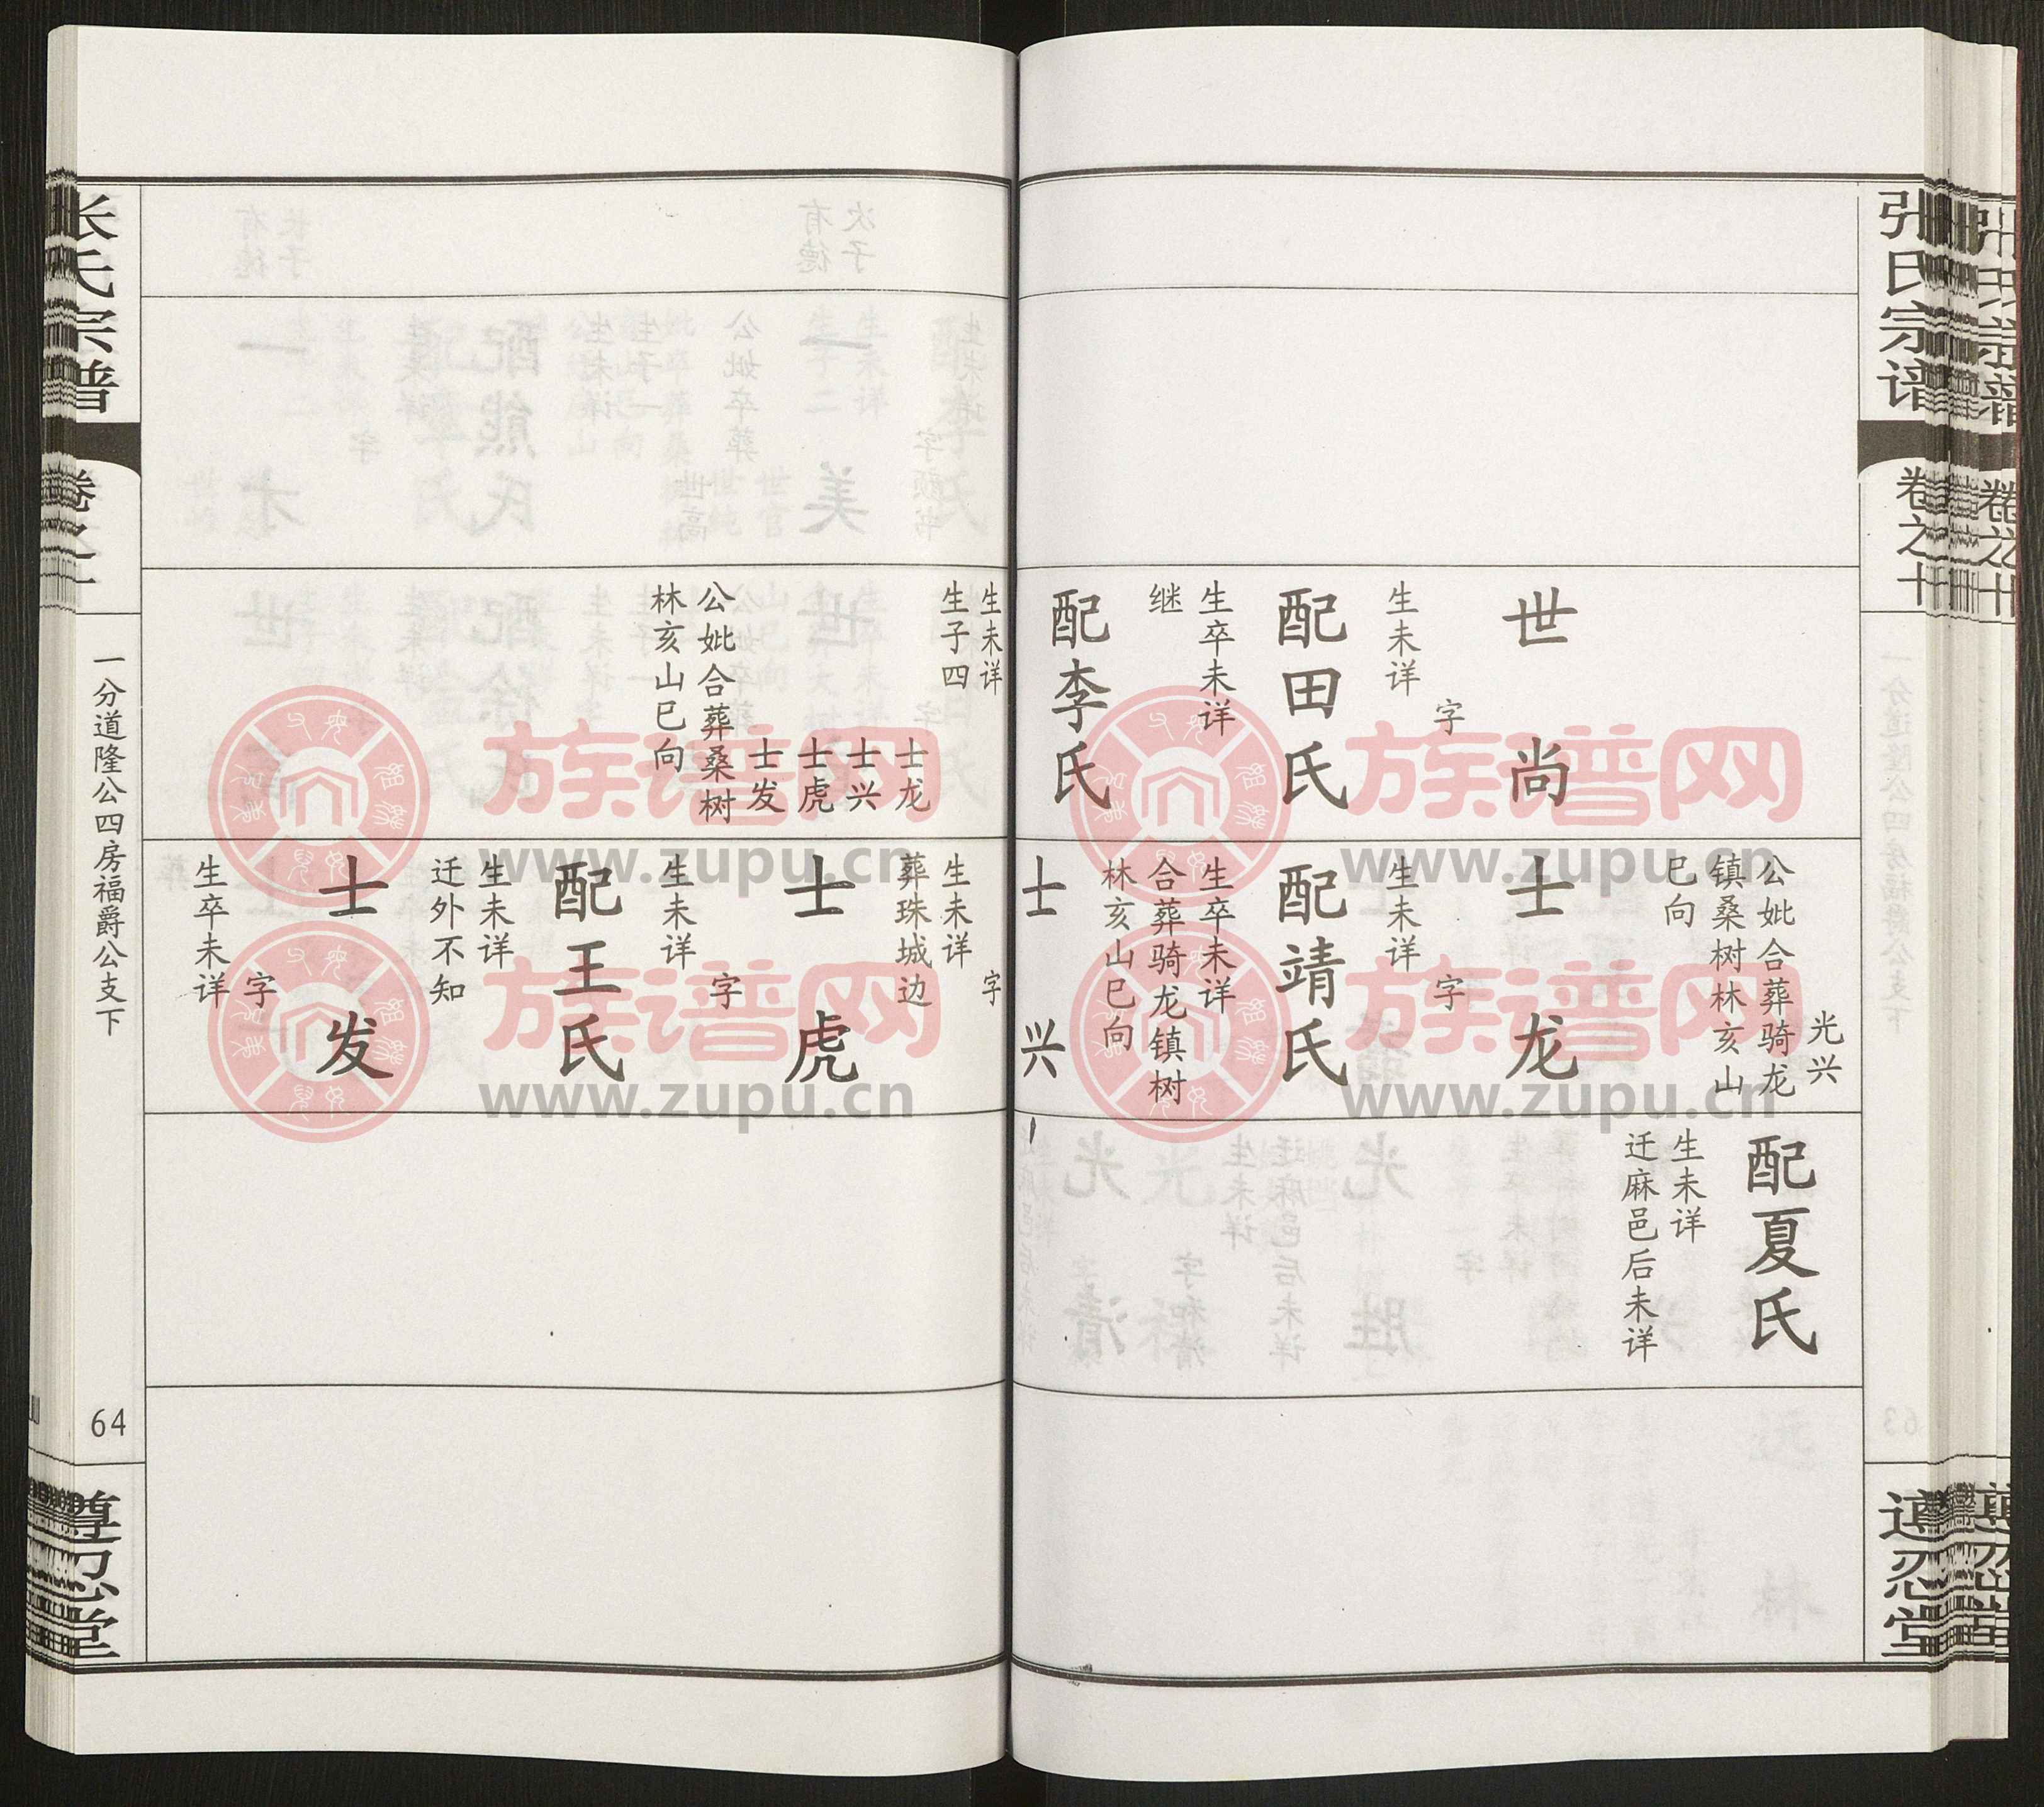 张氏宗谱
卷之十
遵忍堂
世尚
字
生未详
配田氏
生卒未详
继
配李氏
光兴
公妣合葬骑龙
镇桑树林亥山
巳向
士龙
字
生未详
配靖氏
生卒未详
合葬骑龙镇树
林亥山巳向
士兴
配夏氏
生未详
迁麻邑后未详
生未详
生子四
士龙
士兴
士虎
士发
公妣合葬桑树
林亥山巳向
字
生未详
葬珠城边
士虎
字
生未详
配王氏
生未详
迁外不知
士发
字
生卒未详
张氏宗谱
卷之十
一分道隆公四房福爵公支下
64
遵忍堂
族谱网
www.zupu.cn
族谱网
www.zupu.cn
族谱网
www.zupu.cn
族谱网
www.zupu.cn